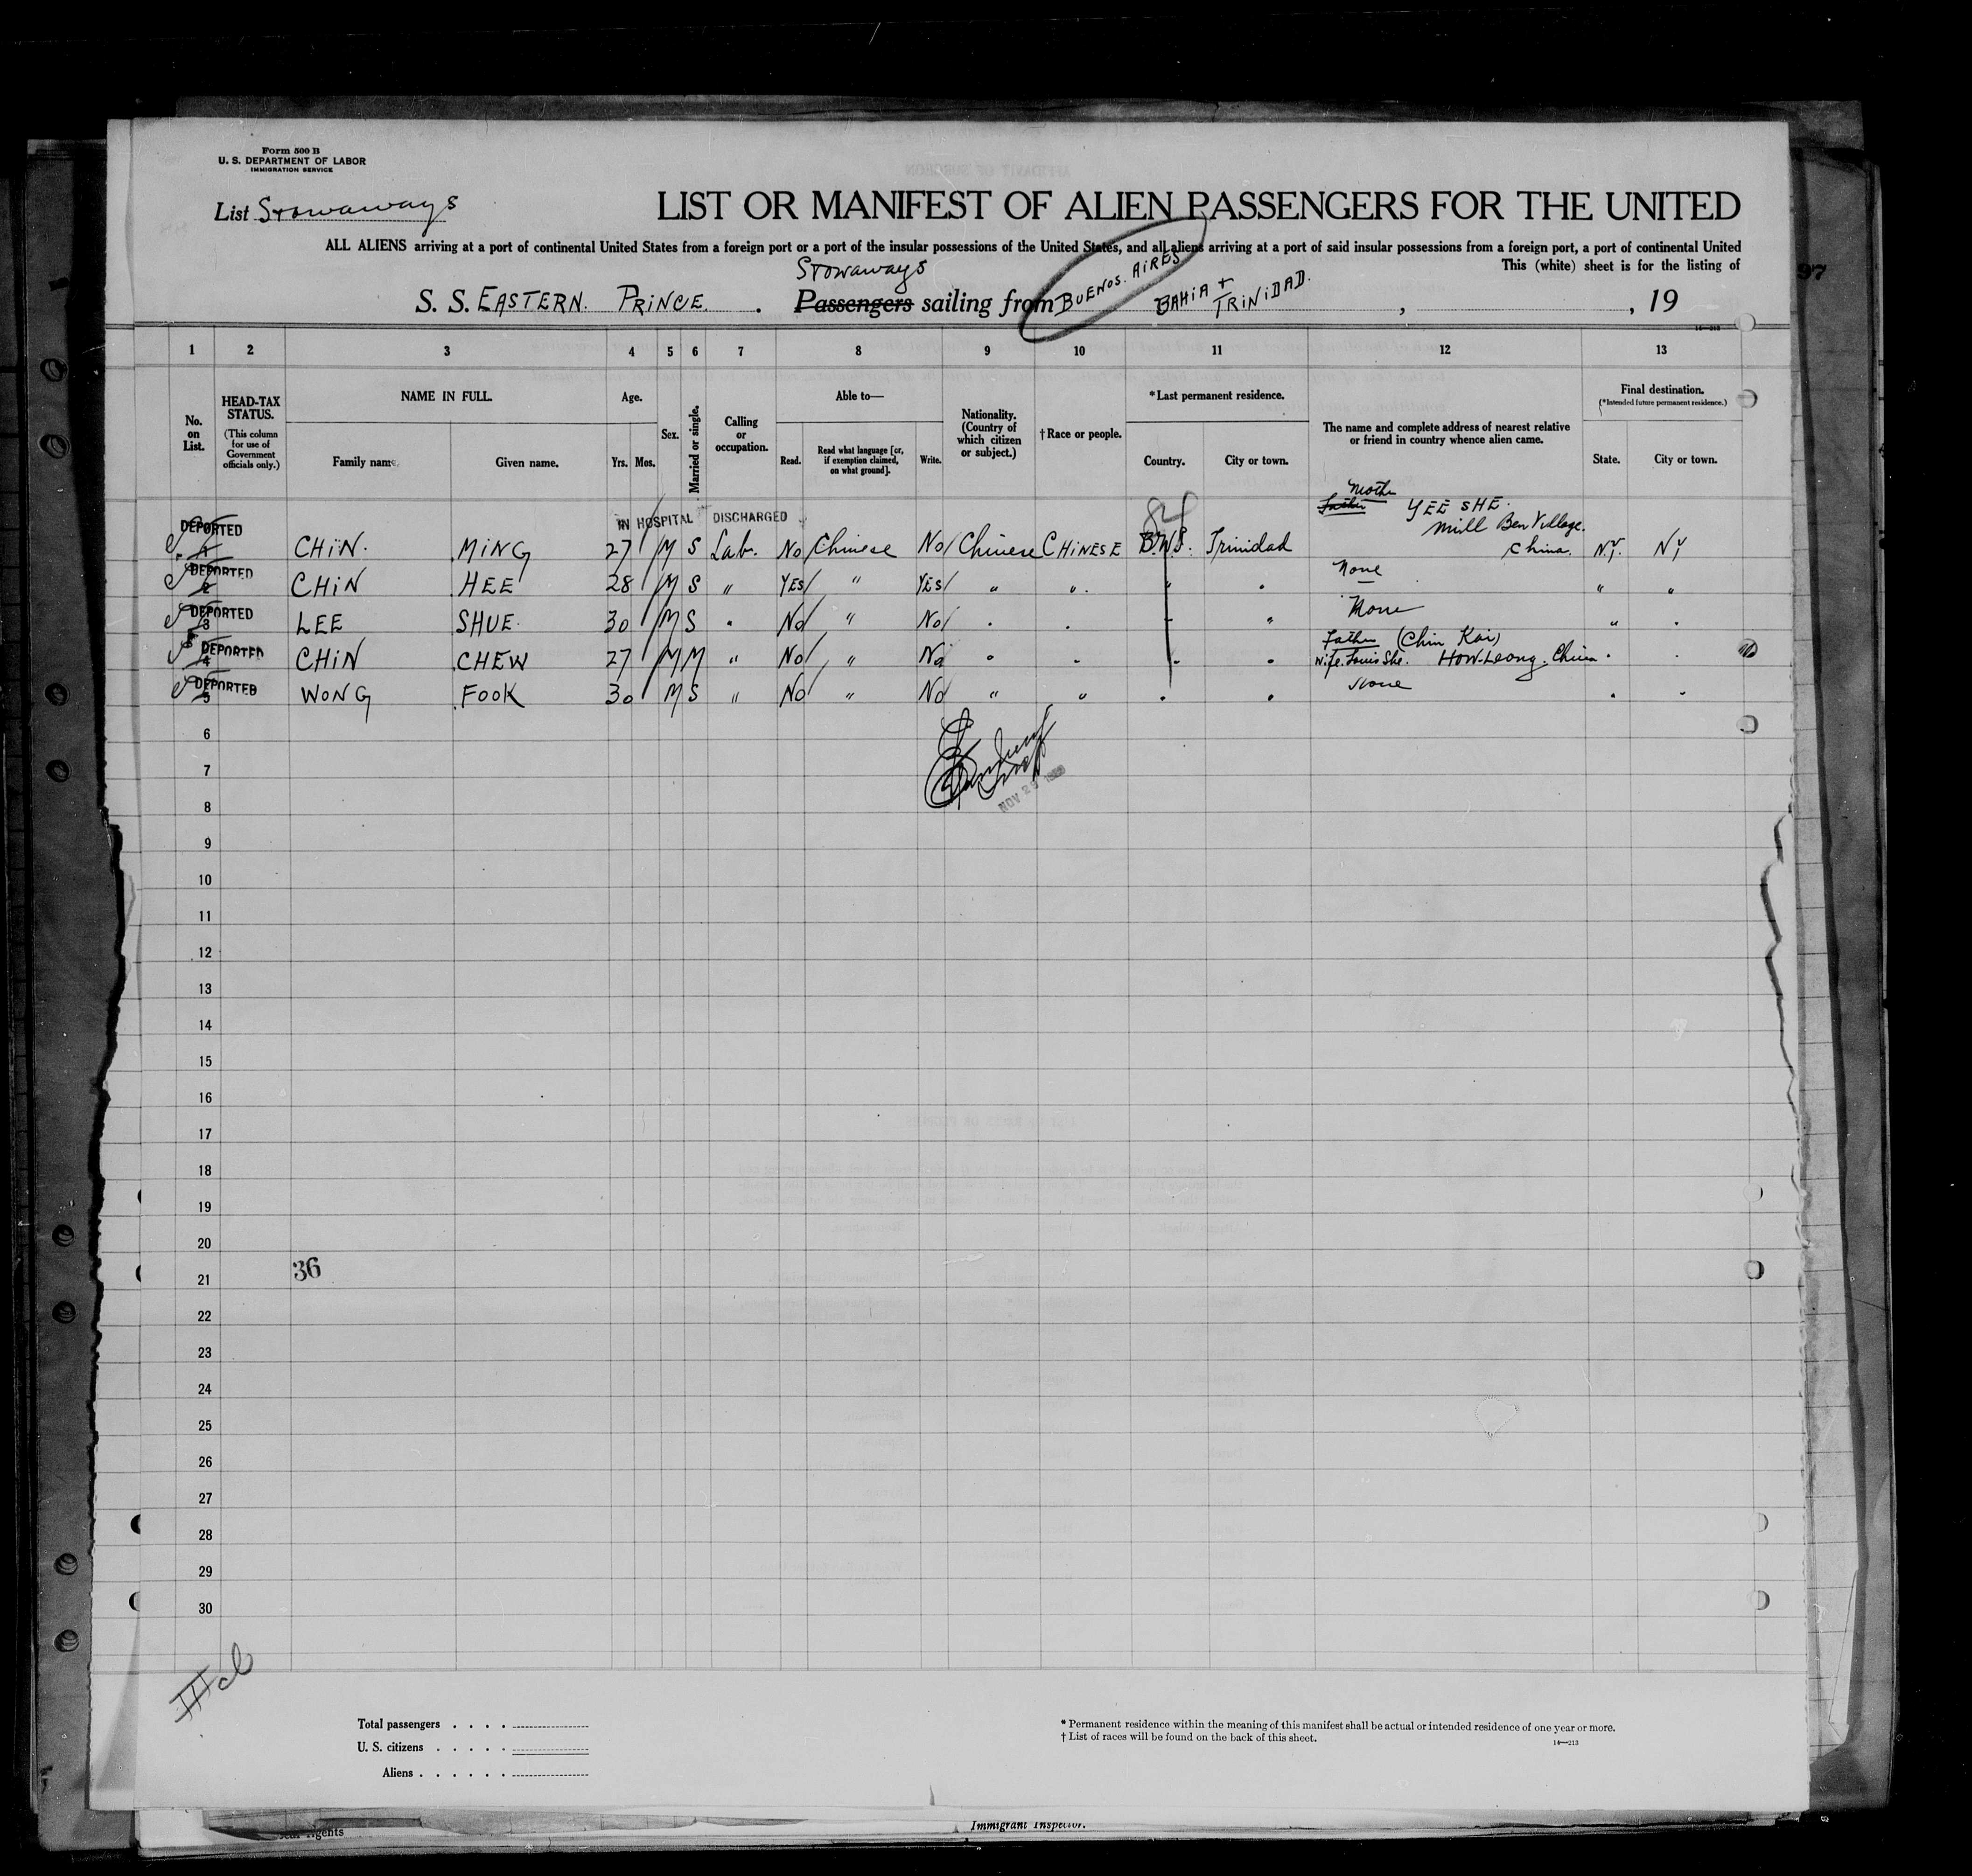 Form 500 B
U. S. DEPARTMENT OF LABOR
IMMIGRATION SERVICE
List Stowaways
LIST OR MANIFEST OF ALIEN PASSENGERS FOR THE UNITED
ALL ALIENS arriving at a port of continental United States from a foreign port or a port of the insular possessions of the United States, and all aliens arriving at a port of said insular possessions from a foreign port, a port of continental United
This (white) sheet is for the listing of
Stowaways
S. S. EASTERN PRINCE. Passengers sailing from BUENOS. AIRES BAHIA + TRINIDAD. , , 19
14—213
1 2 3 4 5 6 7 8 9 10 11 12 13
No. on List.
HEAD-TAX STATUS.
(This column for use of Government officials only.)
NAME IN FULL.
Family name.
Given name.
Age.
Yrs. Mos.
Sex.
Married or single.
Calling or occupation.
Able to—
Read.
Read what language [or, if exemption claimed, on what ground].
Write.
Nationality. (Country of which citizen or subject.)
†Race or people.
*Last permanent residence.
Country.
City or town.
The name and complete address of nearest relative or friend in country whence alien came.
Final destination.
(*Intended future permanent residence.)
State.
City or town.
IN HOSPITAL DISCHARGED
84
Mother
Father YEE SHE.
Mill Ben Village.
China.
DEPORTED 1 CHIN. MING 27 M S Lab. No Chinese No Chinese CHINESE B.W.I. Trinidad N.Y. NY
DEPORTED 2 CHIN HEE 28 M S " YES " YES " " " " None " "
DEPORTED 3 LEE SHUE 30 M S " No " No " " " " None " "
Father (Chin Kai)
DEPORTED 4 CHIN CHEW 27 M M " No " No " " " " Wife. Louis She. How-Leong. China " "
DEPORTED 5 WONG FOOK 30 M S " No " No " " " " None " "
6
7
NOV 2
8
9
10
11
12
13
14
15
16
17
18
19
20
36
21
22
23
24
25
26
27
28
29
30
Total passengers . . . .
U. S. citizens . . . . .
Aliens . . . . . .
* Permanent residence within the meaning of this manifest shall be actual or intended residence of one year or more.
† List of races will be found on the back of this sheet.
14—213
Immigrant Inspector.
97